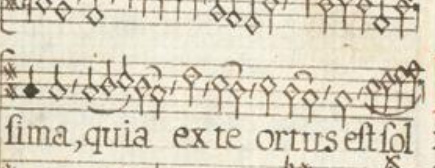 ſima,quia ex te ortus eſt ſol